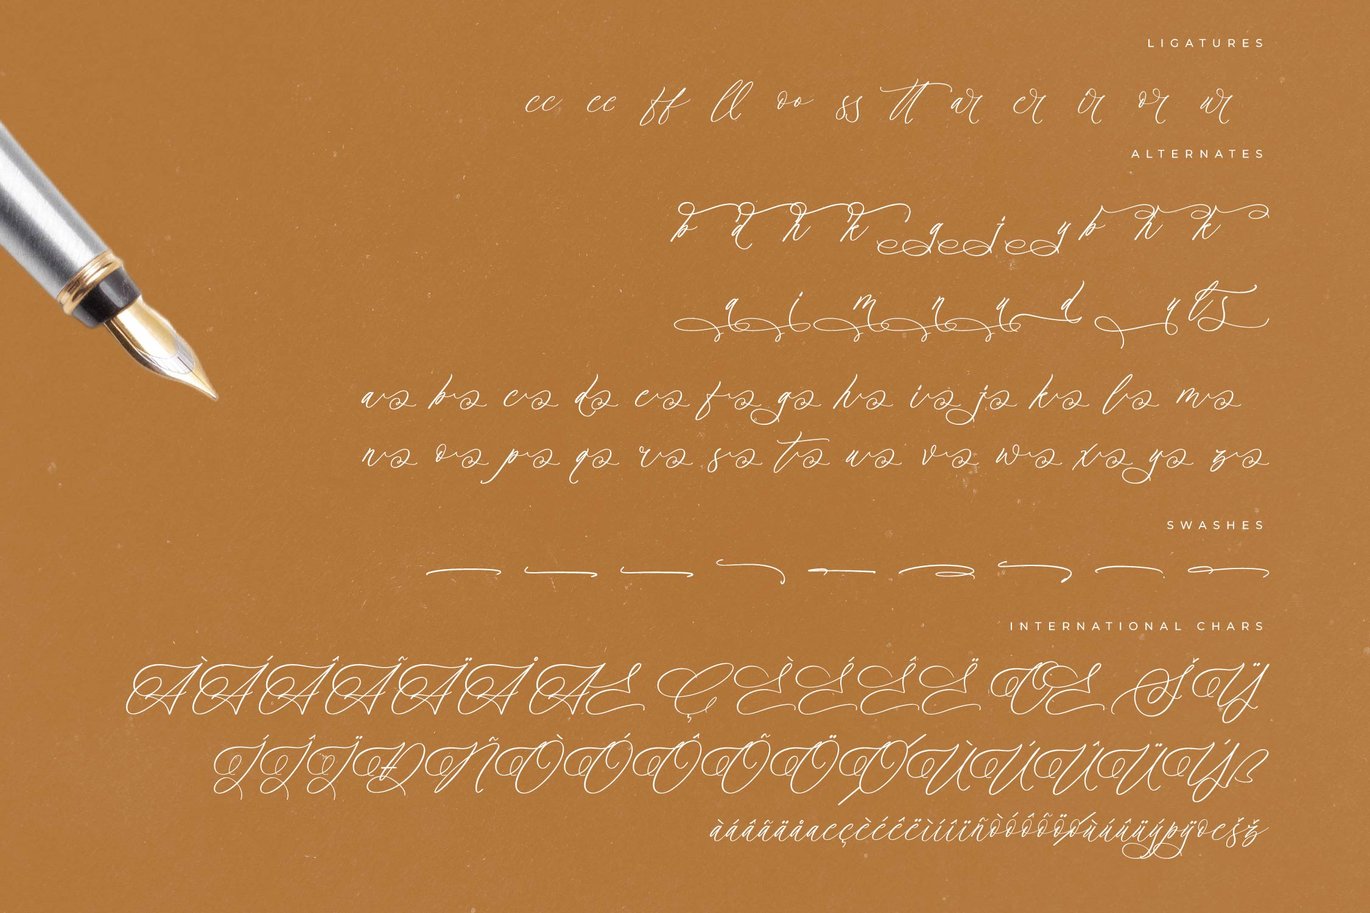 LIGATURES
cc ee ff ll oo ss tt ar er ir or ur
ALTERNATES
b d h k g j y b h k
a i m n u d y t s
a b c d e f g h i j k l m
n o p q r s t u v w x y z
SWASHES
INTERNATIONAL CHARS
À Á Â Ã Ä Å Æ Ç È É Ê Ë Œ Š Ÿ
Í Î Ï Ð Ñ Ò Ó Ô Õ Ö Ø Ù Ú Û Ü Ý ß
à á â ã ä å æ ç è é ê ë ì í î ï ñ ò ó ô õ ö ø ù ú û ü ý þ ÿ œ š ž